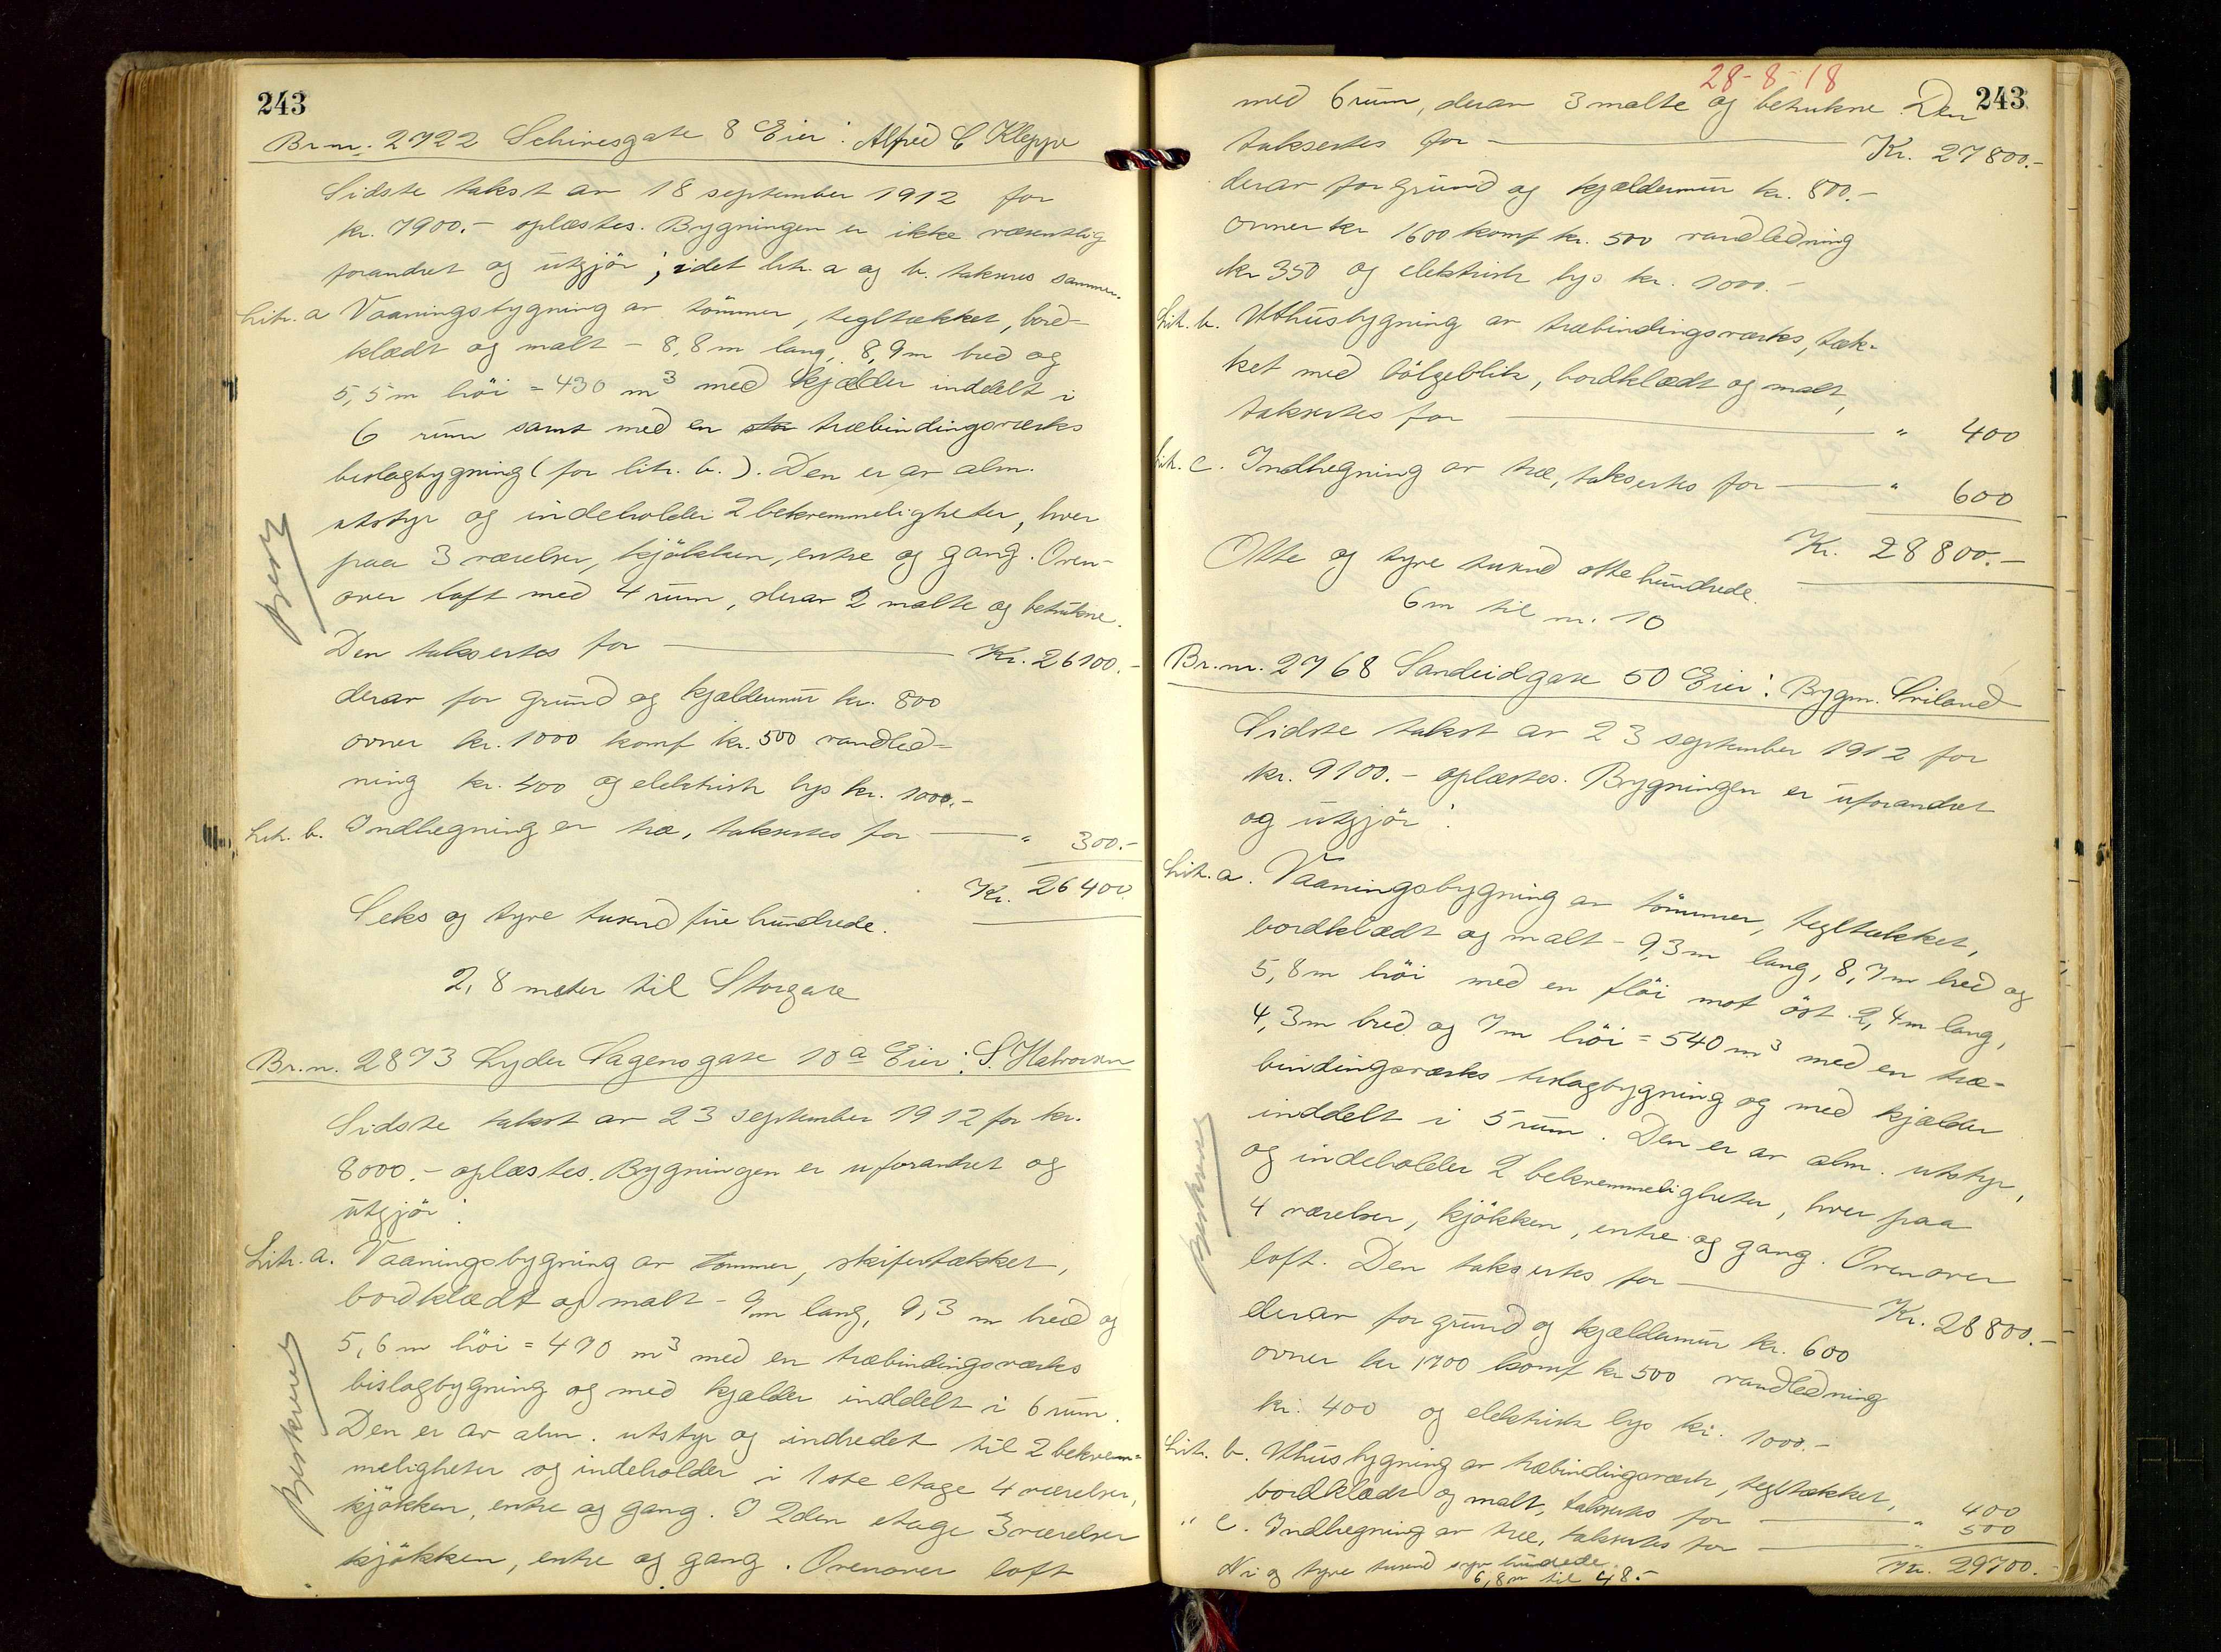 243
Br.nr. 2722 Schivesgate 8 Eier: Alfred C Kleppe
Sidste takst av 18 september 1912 for
kr. 7900.- oplæstes. Bygningen er ikke væsentlig
forandret og utgjör; idet litr. a og b. takseres sammen.
Litr. a Vaaningsbygning av tömmer, tegltækket, bord-
klædt og malt - 8,8 m lang, 8,9 m bred og
5,5 m höi = 430 m3 med kjælder inddelt i
6 rum samt med en træbindingsværks
bislagbygning (for litr. b.). Den er av alm.
utstyr og indeholder 2 bekvemmeligheter, hver
paa 3 værelser, kjökken, entre og gang. Oven-
over loft med 4 rum, derav 2 malte og betrukne.
Den taksertes for Kr. 26100.-
derav for grund og kjældermur kr. 800
ovner kr. 1000 komf kr. 500 vandled-
ning kr. 400 og elektrisk lys kr. 1000.-
Litr. b. Indhegning er træ, taksertes for " 300.-
Kr. 26400.
Seks og tyve tusind fire hundrede.
2,8 meter til Storgate
Br.n. 2873 Lyder Sagensgate 10a Eier: S. Halvorsen
Sidste takst av 23 september 1912 for kr.
8000.- oplæstes. Bygningen er uforandret og
utgjör:
Litr. a. Vaaningsbygning av tømmer, skifertækket,
bordklædt og malt - 9m lang, 9,3 m bred og
5,6 m höi = 470 m3 med en træbindingsværks
bislagbygning og med kjælder inddelt i 6 rum.
Den er av alm. utstyr og indredet til 2 bekvem=
meligheter og indeholder i 1ste etage 4 værelser,
kjökken, entre og gang. I 2den etage 3 værelser
kjökken, entre og gang. Ovenover loft
28-8-18
243
med 6 rum, derav 3 malte og betrukne. Den
taksertes for Kr. 27800.-
derav for grund og kjældermur kr. 800.-
ovner kr 1600 komf kr. 500 vandledning
kr 350 og elektrisk lys kr. 1000.-
Litr. b. Uthusbygning av træbindingsværks, tæk-
ket med bölgeblik, bordklædt og malt,
taksertes for " 400
Litr. c. Indhegning av træ, taksertes for " 600
Kr. 28800.-
Otte og tyve tusind otte hundrede.
6m til nr. 10
Br.nr. 2768 Sandeidgate 50 Eier: Bygm. Sviland
Sidste takst av 23 september 1912 for
kr. 9100.- oplæstes. Bygningen er uforandret
og utgjör:
Litr. a. Vaaningsbygning av tömmer, tegltækket,
bordklædt og malt - 9,3m lang, 8,7m bred og
5,8m höi med en flöi mot öst 2,4m lang,
4,3m bred og 7m höi = 540 m3 med en træ-
bindingsværks bislagbygning og med kjælder
inddelt i 5 rum. Den er av alm. utstyr,
og indeholder 2 bekvemmeligheter, hver paa
4 værelser, kjökken, entre og gang. Ovenover
loft. Den taksertes for Kr. 28800.-
derav for grund og kjældermur kr. 600
ovner kr 1700 komf kr 500 vandledning
kr. 400 og elektrisk lys kr. 1000.-
Litr. b. Uthusbygning av træbindingsværk, tegltækket,
bordklædt og malt, taksertes for " 400
" c. Indhegning av træ, taksertes for " 500
Kr. 29700.-
Ni og tyve tusind syv hundrede.
6,8m til 48.-